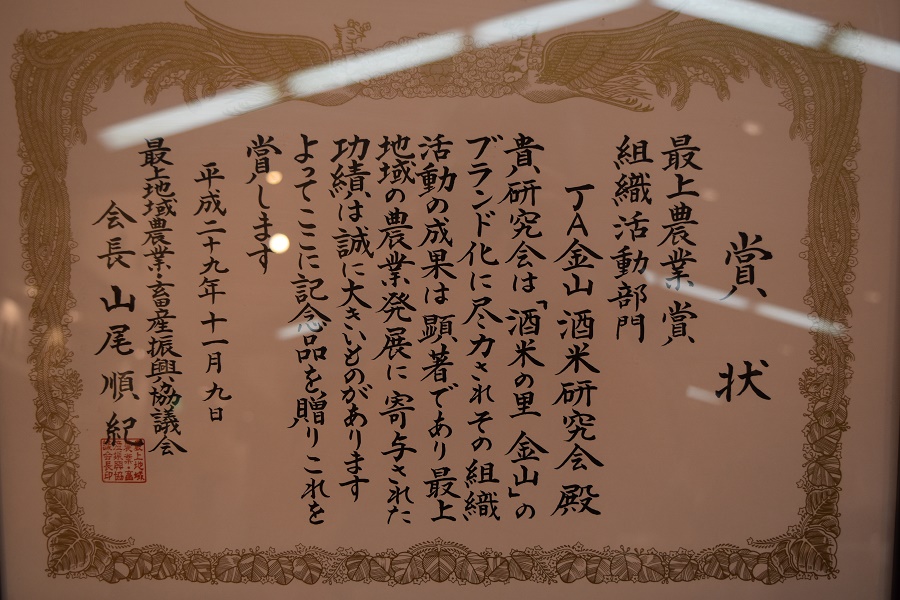 賞状
最上農業賞
組織活動部門
JA金山酒米研究会殿
貴研究会は「酒米の里 金山」の
ブランド化に尽力されその組織
活動の成果は顕著であり最上
地域の農業発展に寄与された
功績は誠に大きいものがあります
よってここに記念品を贈りこれを
賞します
平成二十九年十一月九日
最上地域農業・畜産振興協議会
会長 山尾順紀